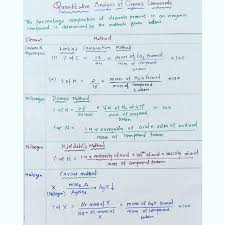 Quantitative Analysis of Organic Compounds
The percentage composition of elements present in an organic
compound is determined by the methods given below:
Element Method
Carbon & Liebig's Combustion Method
Hydrogen (i) % of C = 12/44 × mass of CO2 formed / mass of compound taken × 100
(ii) % of H = 2/18 × mass of H2O formed / mass of compound taken × 100
Nitrogen Dumas Method
28 × 100
mass of compound taken
% of N = 1.4 × normality of acid × volume of acid used
mass of compound taken
Nitrogen Kjeldahl's Method
% of N = 1.4 × normality of acid × of acid
mass of compound taken
Halogen Carius method
X HNO3 AgX ↓
(Halogen) AgNO3
% of X = At. mass of X / 108 + At. mass of X × mass of AgX formed / mass of compound taken × 100